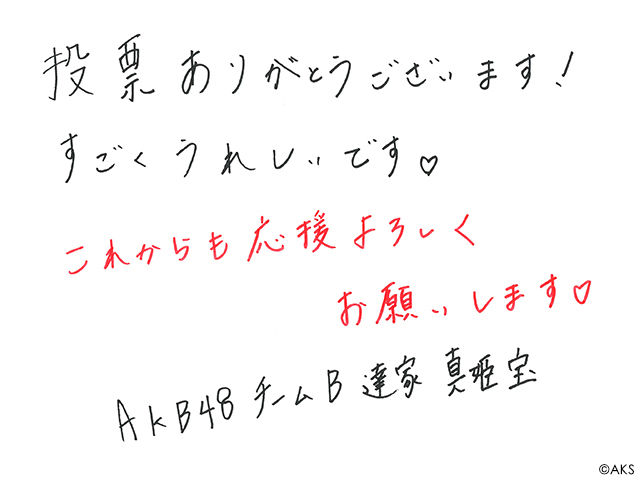 投票ありがとうございます!
すごくうれしいです♡
これからも応援よろしく
お願いします♡
AKB48 チームB 達家 真姫宝
©AKS